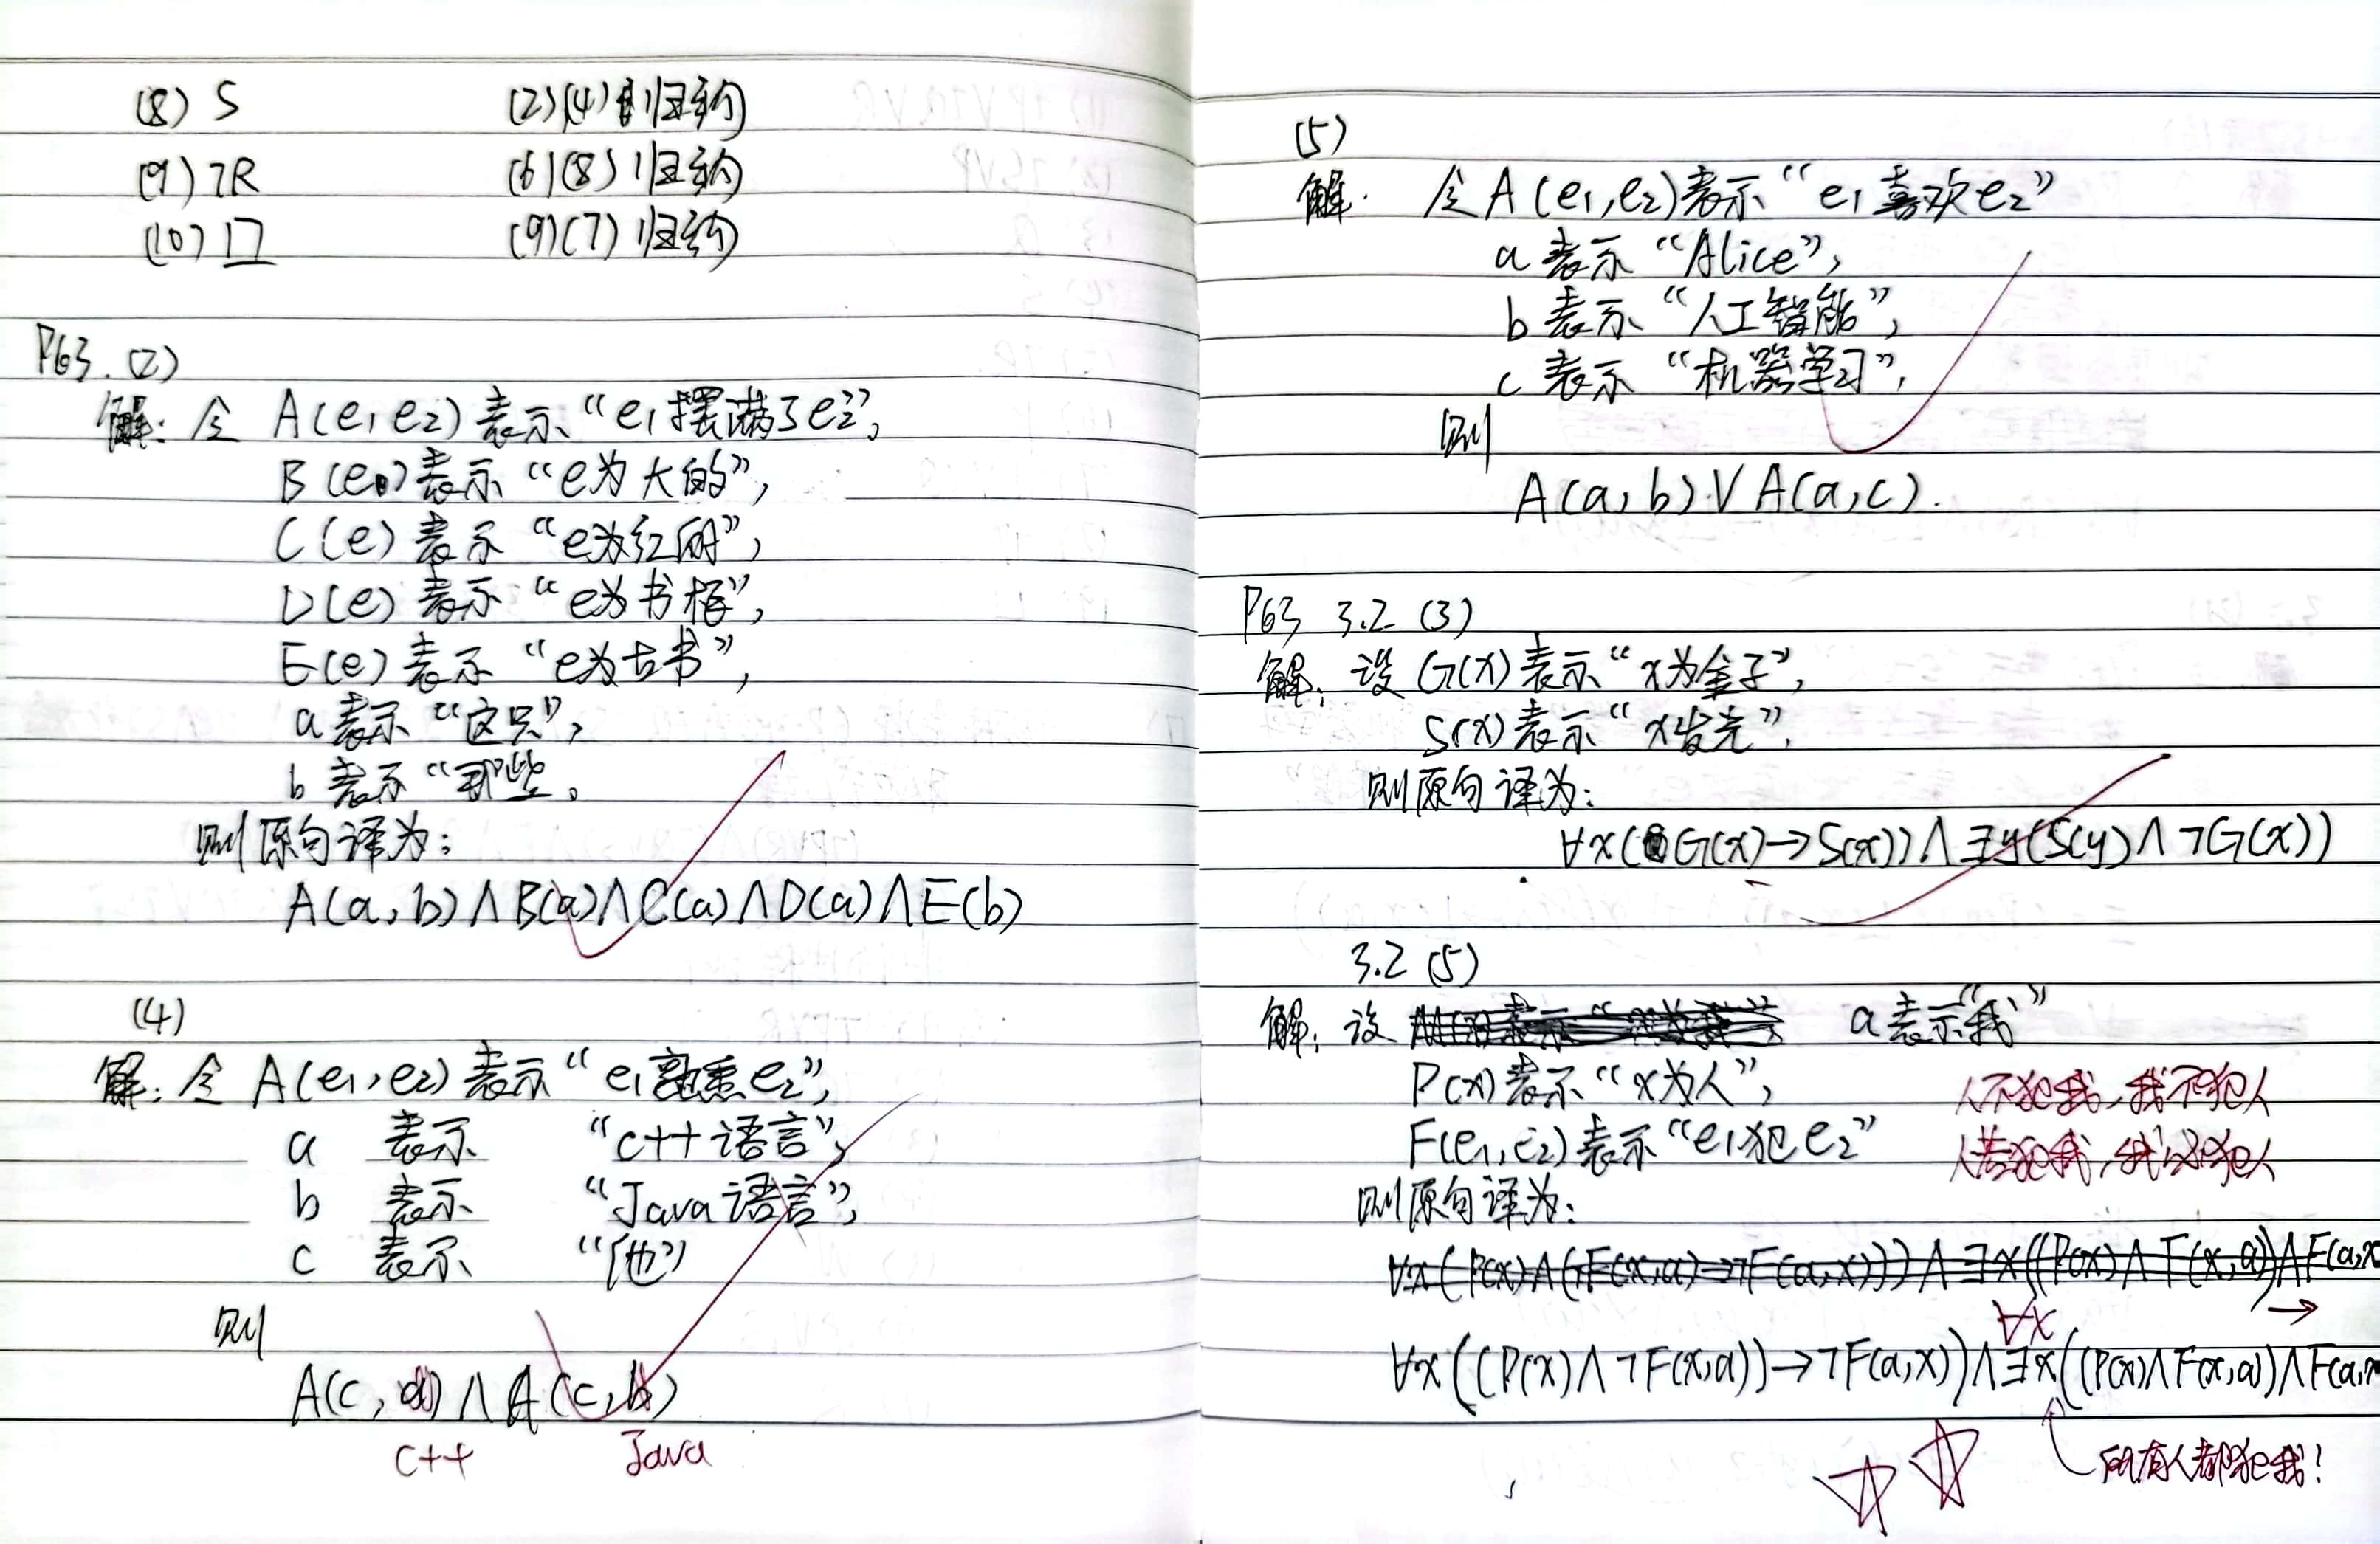 (8) S (2)(4)归结
(9) ¬R (6)(8)归结
(10) □ (9)(7)归结
P63. (2)
解: 令 A(e₁ e₂) 表示 “e₁摆满了e₂”,
B(e) 表示 “e为大的”,
C(e) 表示 “e为红的”,
D(e) 表示 “e为书柜”,
E(e) 表示 “e为古书”,
a 表示 “这只”,
b 表示 “那些。
则原句译为:
A(a, b)∧B(a)∧C(a)∧D(a)∧E(b)
(4)
解: 令 A(e₁, e₂) 表示 “e₁熟悉e₂”,
a 表示 “c++语言”,
b 表示 “Java语言”,
c 表示 “他”
则
A(c, a) ∧ A(c, b)
c++ Java
(5)
解. 令 A(e₁, e₂) 表示 “e₁喜欢e₂”
a 表示 “Alice”,
b 表示 “人工智能”,
c 表示 “机器学习”,
则
A(a, b) ∨ A(a, c).
P63 3.2 (3)
解: 设 G(x) 表示 “x为金子”,
S(x) 表示 “x发光”.
则原句译为:
∀x(G(x)→S(x))∧∃y(S(y)∧¬G(x))
3.2 (5)
解: 设 a 表示“我”
P(x) 表示 “x为人”,
F(e₁, e₂) 表示 “e₁犯e₂”
人不犯我, 我不犯人
人若犯我, 我必犯人
则原句译为:
∀x(P(x)∧(¬F(x,a)→¬F(a,x)))∧∃x((P(x)∧F(x,a))∧F(a,x
∀x →
∀x((P(x)∧¬F(x,a))→¬F(a,x))∧∃x((P(x)∧F(x,a))∧F(a,x
所有人都犯我!